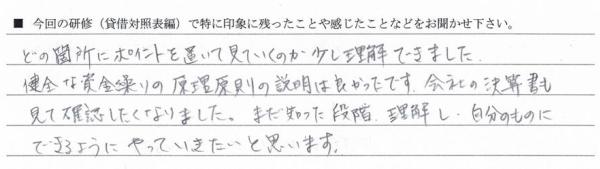 ■ 今回の研修（貸借対照表編）で特に印象に残ったことや感じたことなどをお聞かせ下さい。
どの箇所にポイントを置いて見ていくのか少し理解できました.
健全な資金繰りの原理原則の説明は良かったです. 会社の決算書も
見て確認したくなりました。まだ知った段階. 理解し. 自分のものに
できるようにやっていきたいと思います.